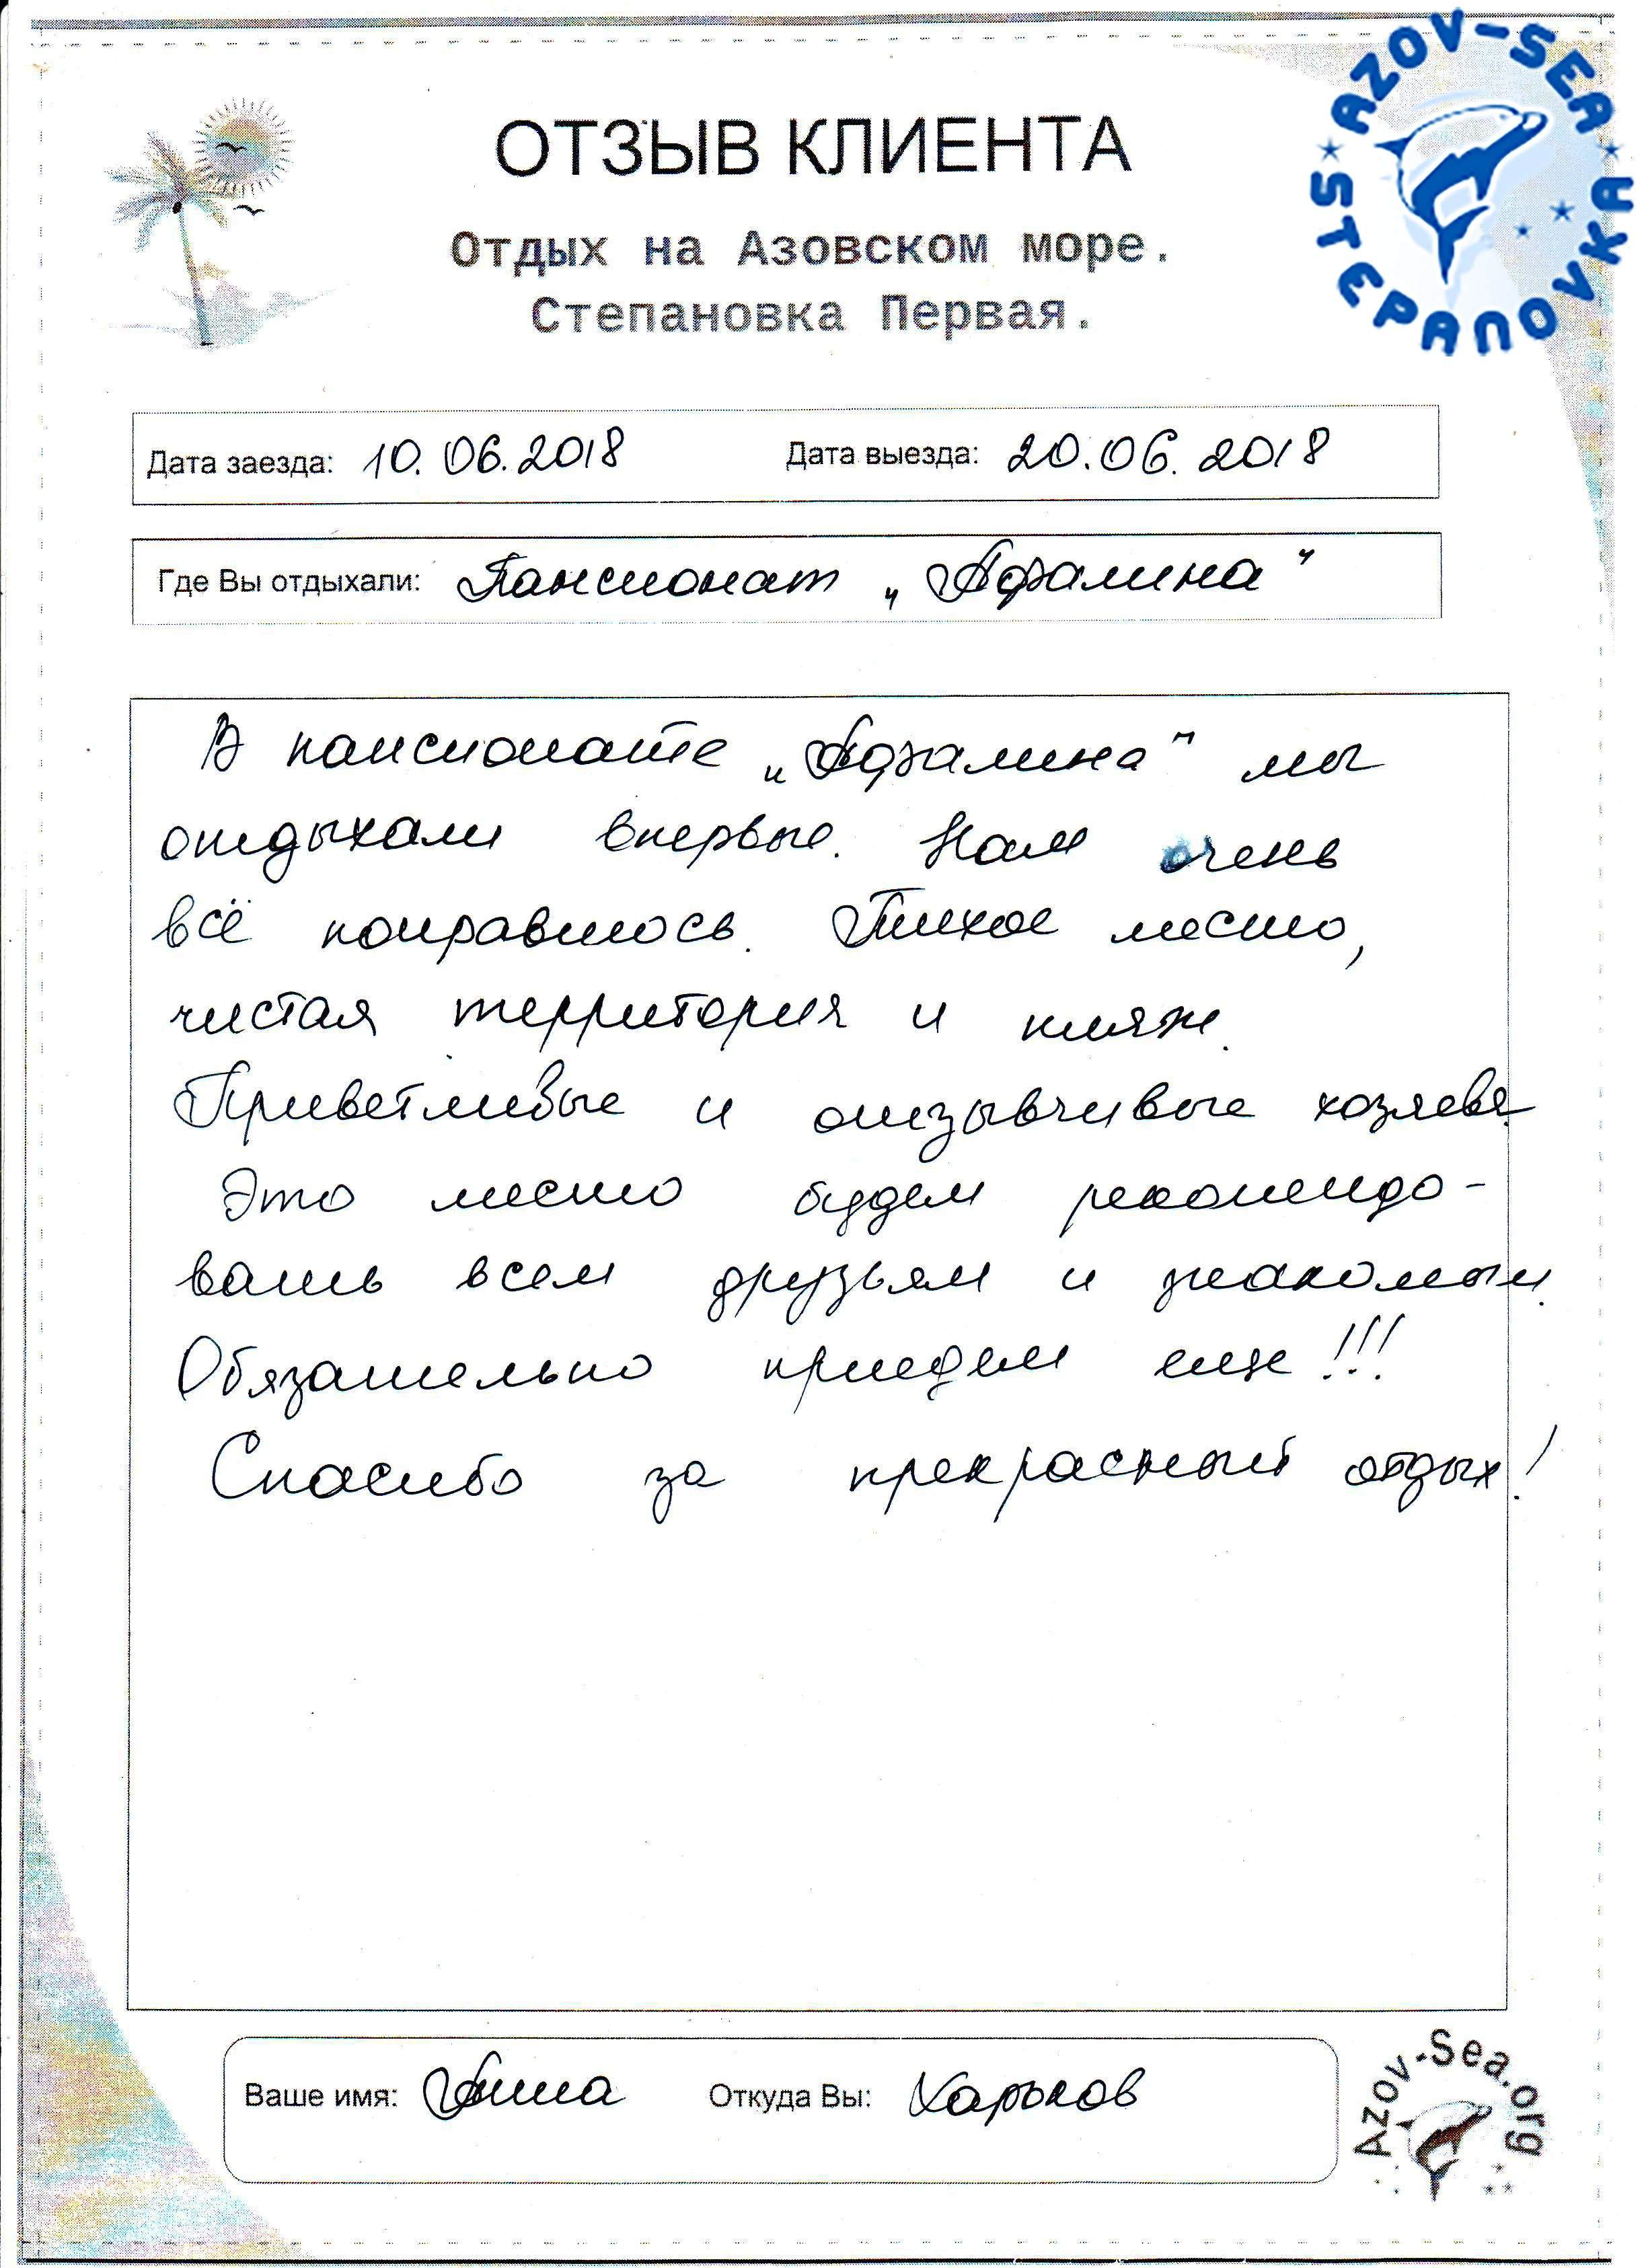 AZOV-SEA
STEPANOVKA
ОТЗЫВ КЛИЕНТА
Отдых на Азовском море.
Степановка Первая.
Дата заезда: 10.06.2018 Дата выезда: 20.06.2018
Где Вы отдыхали: Пансионат „Афалина"
В пансионате „Афалина" мы
отдыхали впервые. Нам очень
всё понравилось. Тихое место,
чистая территория и пляж.
Приветливые и отзывчивые хозяева.
Это место будем рекомендо-
вать всем друзьям и знакомым.
Обязательно приедем еще!!!
Спасибо за прекрасный отдых!
Ваше имя: Откуда Вы: Харьков
Azov-Sea.org